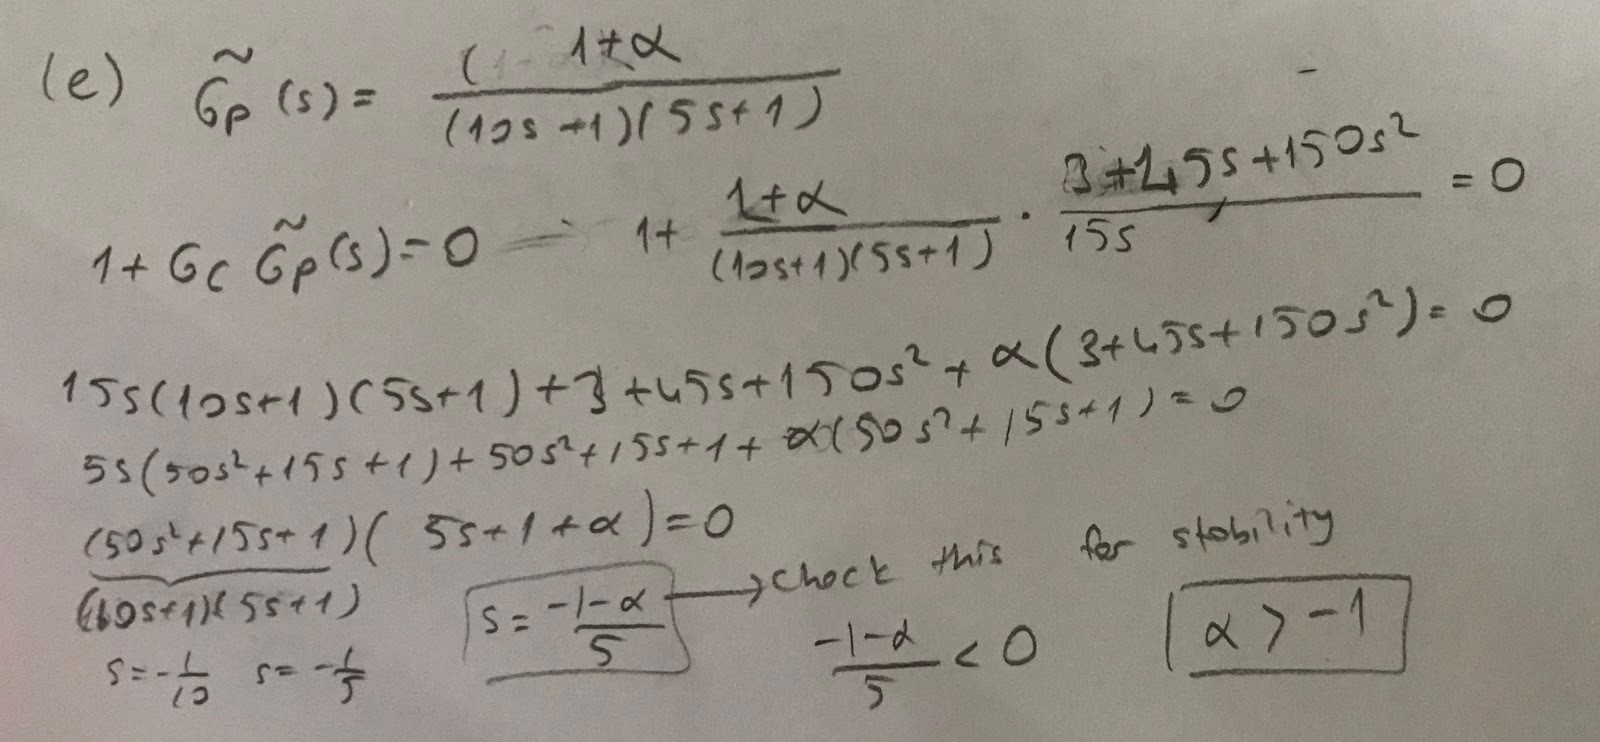 (e) G̃p(s) = (1+α / (10s+1)(5s+1)
1+ Gc G̃p(s)=0 — 1+ 1+α / (10s+1)(5s+1) · 3+45s+150s² / 15s = 0
15s(10s+1)(5s+1)+3+45s+150s²+α(3+45s+150s²)=0
5s(50s²+15s+1)+50s²+15s+1+α(50s²+15s+1)=0
(50s²+15s+1)(5s+1+α)=0
(10s+1)(5s+1) s = -1-α / 5 → check this for stability
s=-1/10 s=-1/5 -1-α / 5 < 0 α > -1